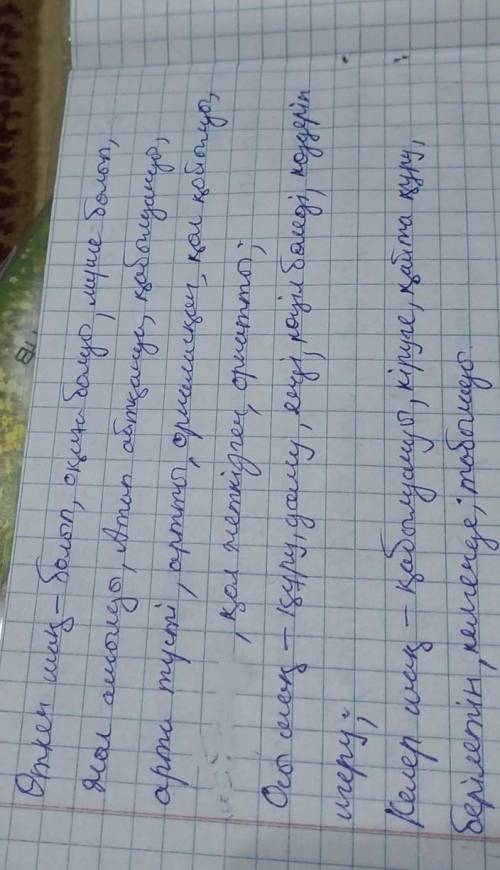 Өткен шақ – болып, оқиға болуы, мүше болып,
жол ашылды, Атап айтқанда, қабылданды,
арта түсті, артты, орналасқан, қол қойылды,
, қол жеткізген, орнатты;
Осы шақ – құру, даму, енді, көңіл бөледі, көздерін
игеру;
Келер шақ – қабылдануы, кіруге, қайта құру,
берілетін, келгенде, табылады.